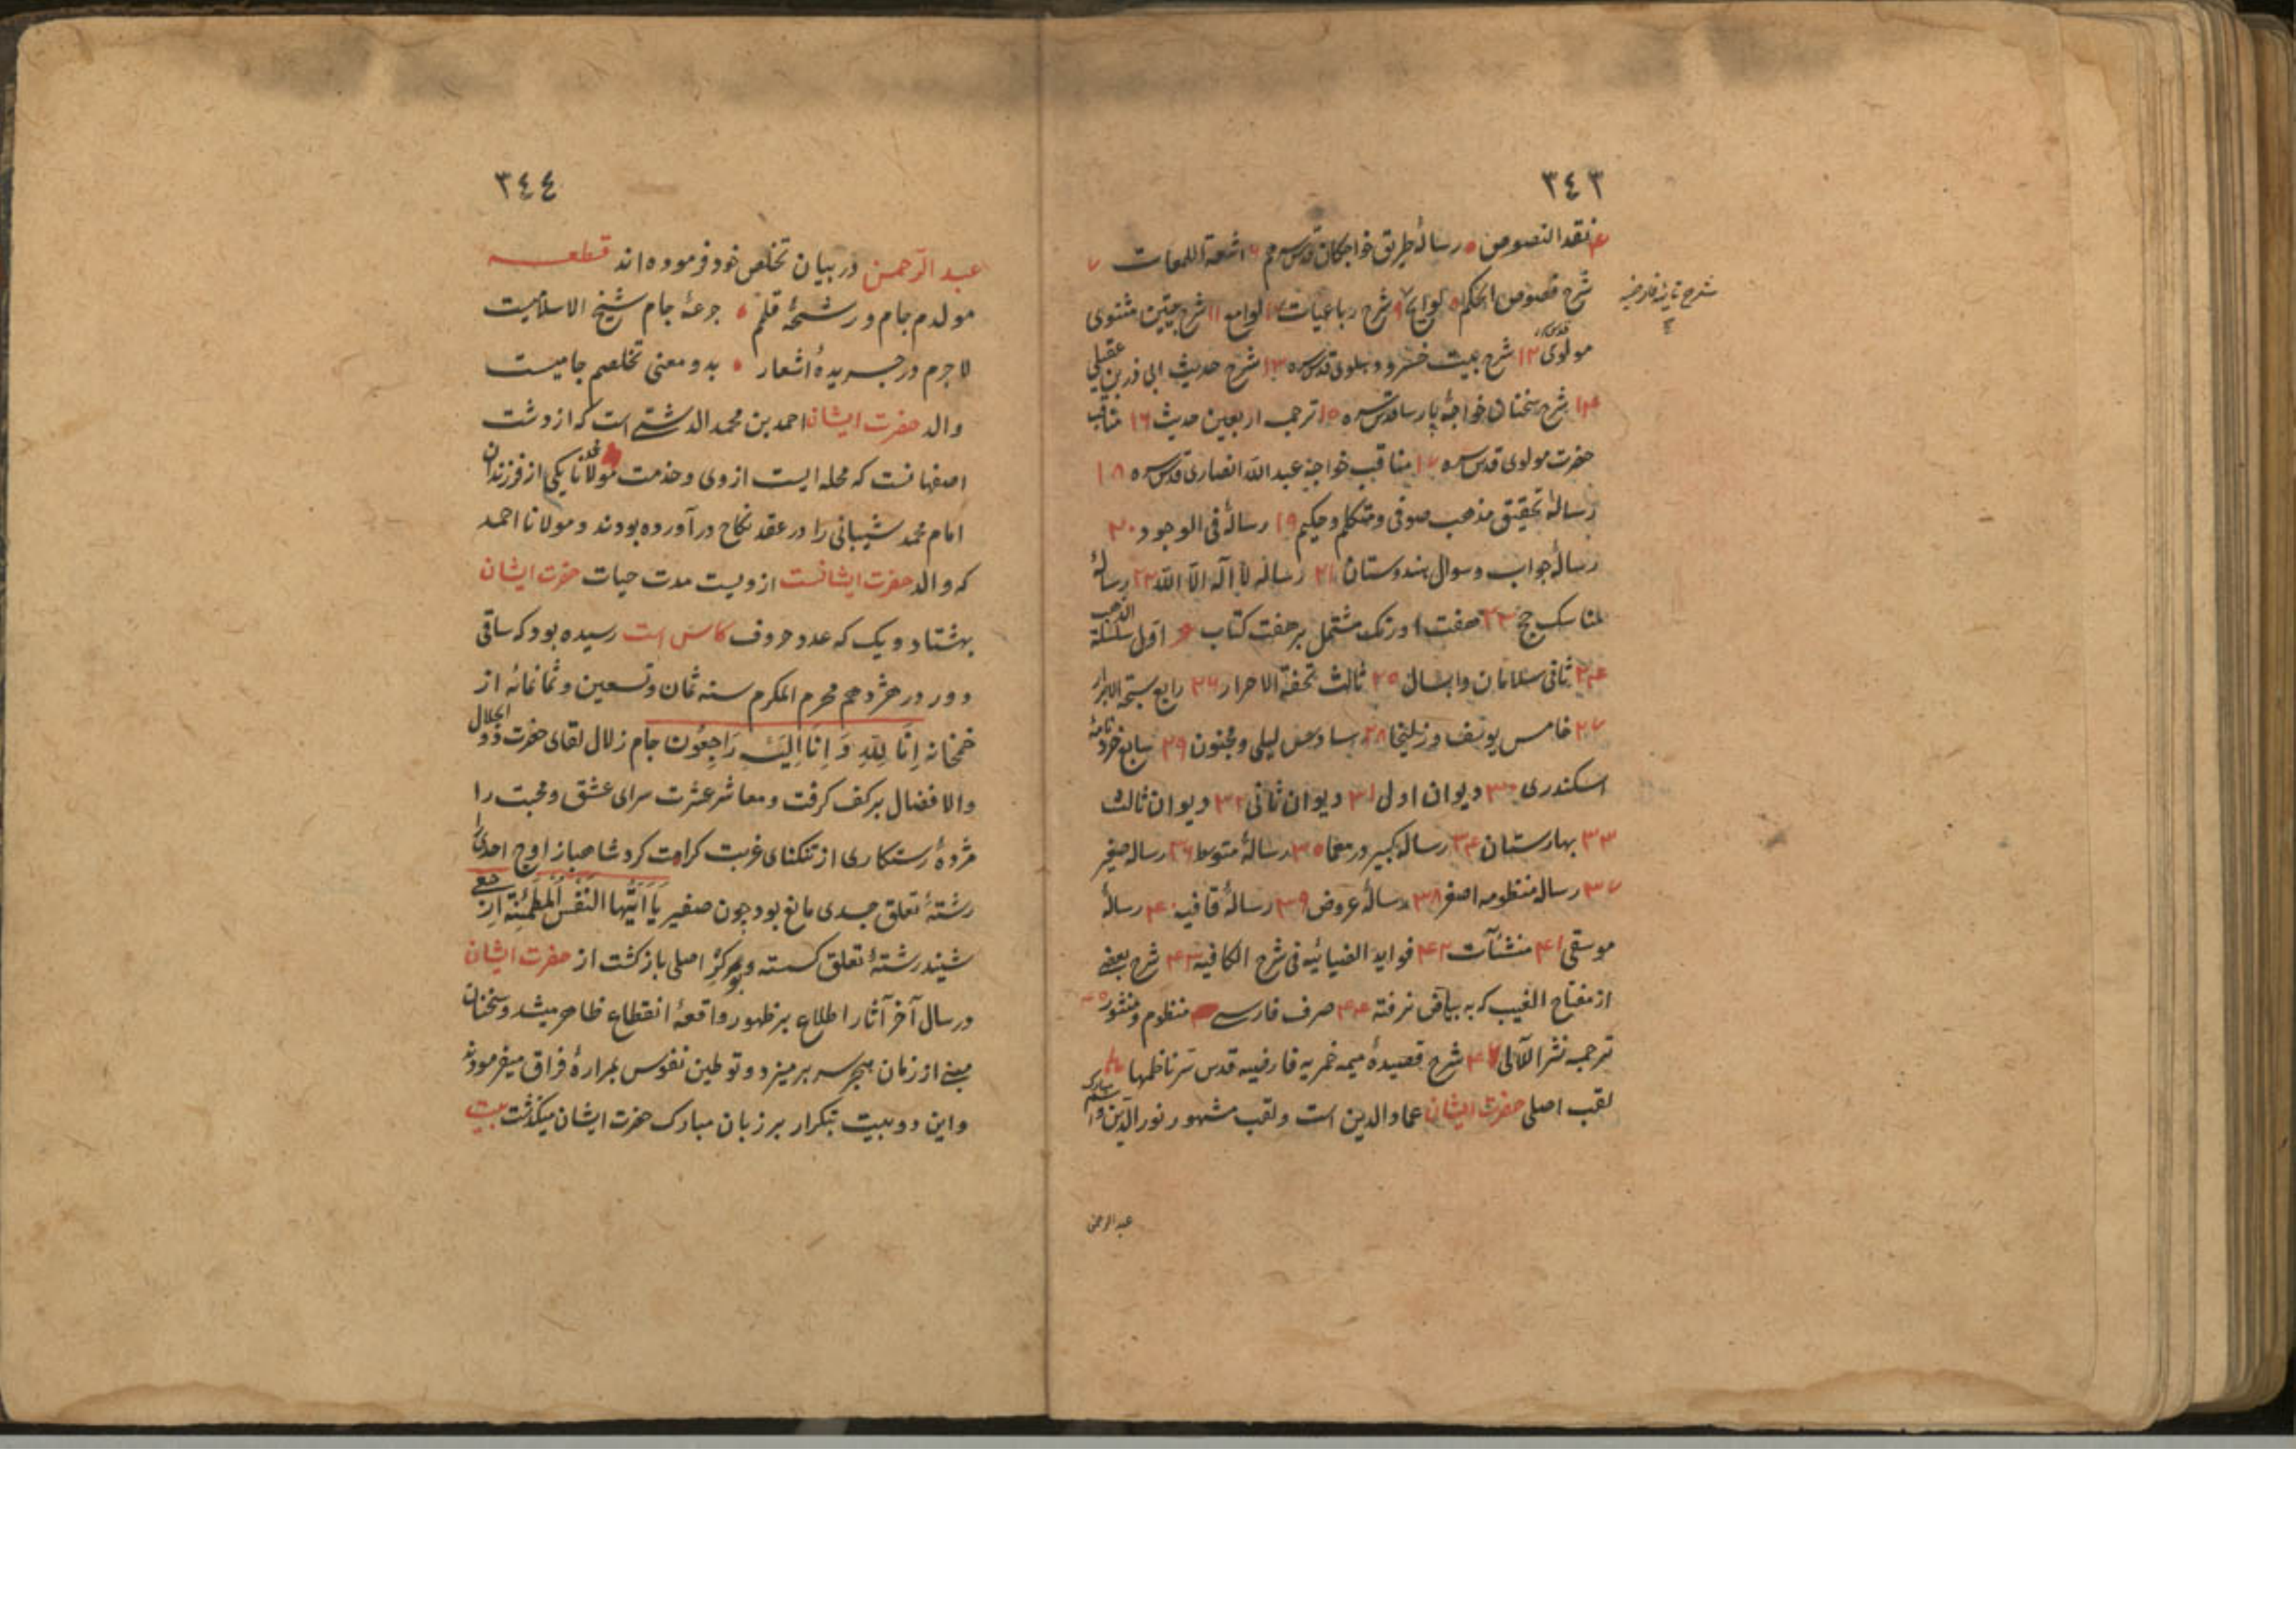 ٣٤٣
۴ نقد النصوص ۵ رسالهٔ طریق خواجکان قدس سرهم ۶ اشعة اللمعات ۷
شرح فصوص الحکم ۸ لوایح ۹ شرح رباعیات ۱۰ لوامع ۱۱ شرح بیتین مثنوی
شرح تائیه فارضیه
مولوی قدس سره ۱۲ شرح بیت خسرو دهلوی قدس سره ۱۳ شرح حدیث ابی ذرین عقیلی
۱۴ شرح سخنان خواجهٔ پارسا قدس سره ۱۵ ترجمه اربعین حدیث ۱۶ مناقب
حضرت مولوی قدس سره ۱۷ مناقب خواجه عبد الله انصاری قدس سره ۱۸
رسالهٔ تحقیق مذهب صوفی و متکلم و حکیم ۱۹ رسالهٔ فی الوجود ۲۰
رسالهٔ جواب و سوال هندوستان ۲۱ رساله لا اله الا الله ۲۲ رسالهٔ
مناسک حج ۲۳ هفت اورنک مشتمل بر هفت کتاب اول سلسلة الذهب
۲۴ ثانی سلامان و ابسال ۲۵ ثالث تحفة الاحرار ۲۶ رابع سبحة الابرار
۲۷ خامس یوسف و زلیخا ۲۸ سادس لیلی و مجنون ۲۹ سابع خردنامهٔ
اسکندری ۳۰ دیوان اول ۳۱ دیوان ثانی ۳۲ دیوان ثالث
۳۳ بهارستان ۳۴ رساله کبیر در معما ۳۵ رسالهٔ متوسط ۳۶ رساله صغیر
۳۷ رساله منظومه اصغر ۳۸ رسالهٔ عروض ۳۹ رسالهٔ قافیه ۴۰ رسالهٔ
موسقی ۴۱ منشآت ۴۲ فواید الضیائیه فی شرح الکافیه ۴۳ شرح بعضی
از مفتاح الغیب که به بیاض نرفته ۴۴ صرف فارسی منظوم و منثور
ترجمه نثر اللآلی شرح قصیدهٔ میمیه خمریه فارضیه قدس سر ناظمها
لقب اصلی حضرت ایشان عماد الدین است و لقب مشهور نور الدین و اسم مبارک
عبد الرحمن
٣٤٤
عبد الرحمن در بیان تخلص خود فرموده اند قطعه
مولدم جام و رشحهٔ قلم ۵ جرعهٔ جام شیخ الاسلامیت
لاجرم در جریدهٔ اشعار ۵ بدو معنی تخلصم جامیست
والد حضرت ایشان احمد بن محمد الدشتی است که از دشت
اصفهانست که محله ایست از وی و خدمت مولانا محمد یکی از فرزندان
امام محمد شیبانی را در عقد نکاح در آورده بودند و مولانا احمد
که والد حضرت ایشانست ازویست مدت حیات حضرت ایشان
بهشتاد و یک که عدد حروف کاس است رسیده بود که ساقی
دور در هژدهم محرم المکرم سنه ثمان و تسعین و ثمانمائه از
خمخانه اِنَّا لِلّٰهِ وَ اِنَّا اِلَیْهِ رَاجِعُون جام زلال لقای حضرت ذو الجلال
والافضال بر کف کرفت و معاشر عشرت سرای عشق و محبت را
مژدهٔ رستکاری از تنکنای غربت کرامت کرد شاهباز اوج احدی را
رشتهٔ تعلق جسدی مانع بود چون صفیر یَا اَیَّتُهَا النَّفْسُ الْمُطْمَئِنَّةُ ارْجِعِی
شنید رشتهٔ تعلق کسسته و بمرکز اصلی باز کشت از حضرت ایشان
در سال آخر آثار اطلاع بر ظهور واقعهٔ انقطاع ظاهر میشد و سخنان
مبنی از زمان هجر سر بر میزد و توطین نفوس بمرارهٔ فراق میفرمودند
و این دو بیت بتکرار بر زبان مبارک حضرت ایشان میکذشت بیت